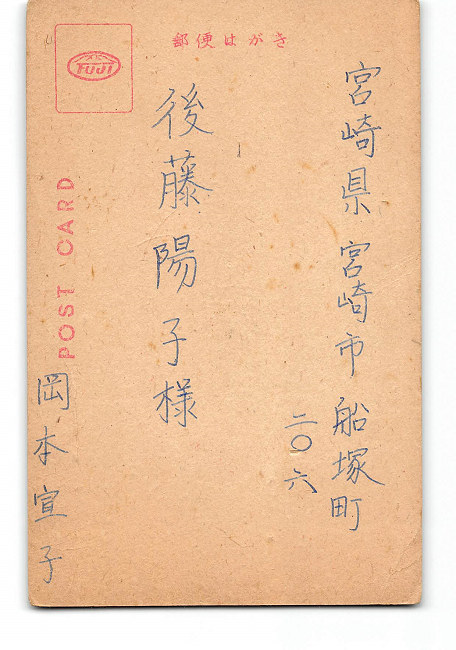 郵便はがき
宮崎県宮崎市船塚町
二〇六
後藤陽子様
岡本宣子
FUJI
POST CARD